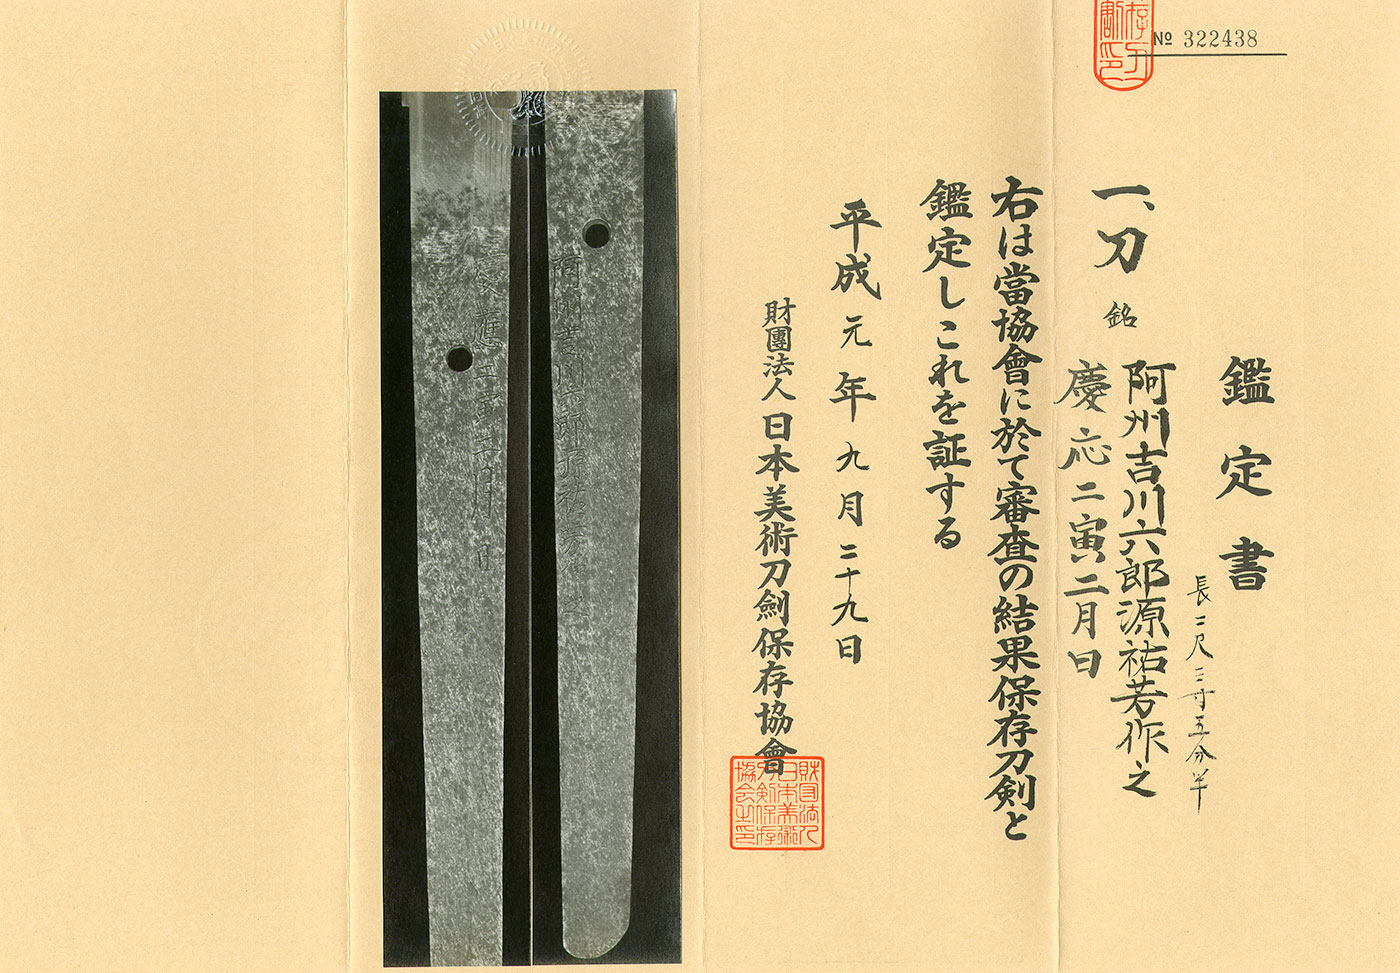 № 322438
鑑定書
長二尺三寸五分半
一、刀 銘 阿州吉川六郎源祐芳作之
慶応二寅二月日
右は當協會に於て審査の結果保存刀剣と
鑑定しこれを証する
平成元年九月二十九日
財團法人日本美術刀劍保存協會
財団法人
日本美術
刀剣保存
協会之印